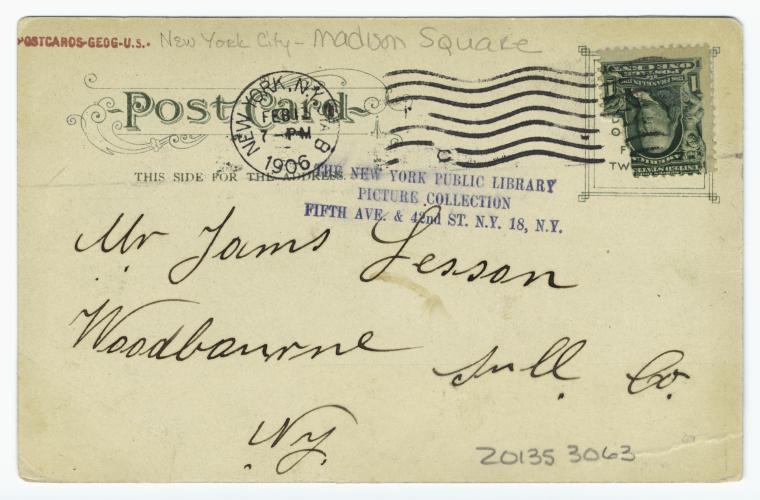 POSTCARDS-GEOG-U.S. New York City - Madison Square
Post Card
NEW YORK, N.Y.
FEB 11
7 - PM
1906
B
THIS SIDE FOR THE ADDRESS
THE NEW YORK PUBLIC LIBRARY
PICTURE COLLECTION
FIFTH AVE. & 42nd ST. N.Y. 18, N.Y.
Mr Jams Lesson
Woodbourne Sull. Co.
N.Y.
20135 3063